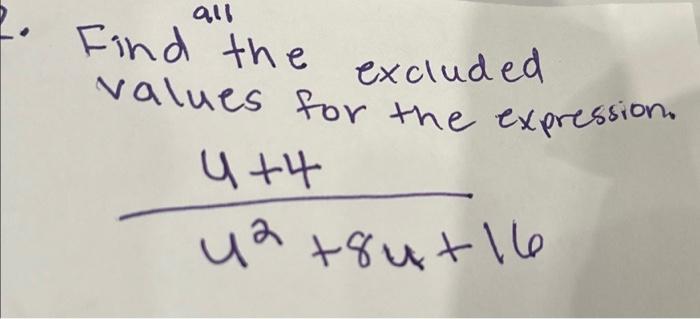 2. Find all the excluded
values for the expression.
u+4
u² +8u+16